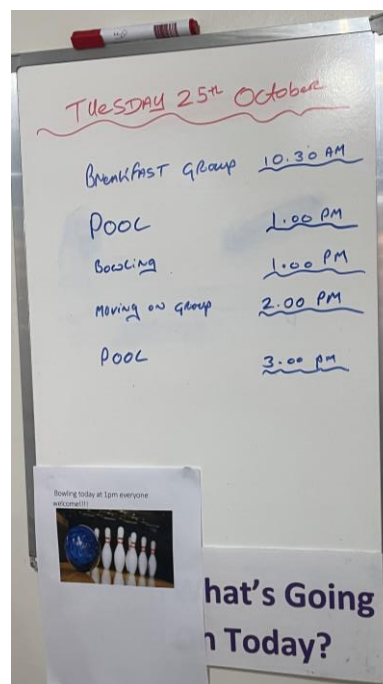 TUESDAY 25th October
BREAKFAST GROUP 10.30 AM
POOL 1.00 PM
BOWLING 1.00 PM
MOVING ON GROUP 2.00 PM
POOL 3.00 pm
Bowling today at 1pm everyone
welcome!!!!
hat's Going
n Today?